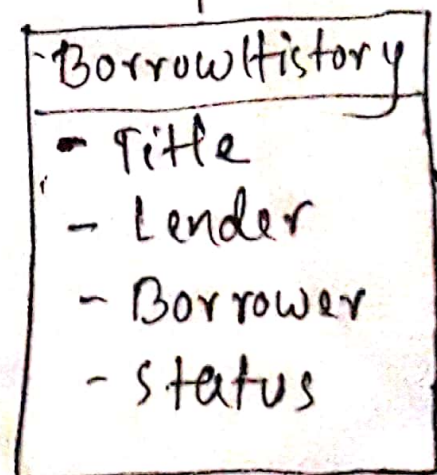 BorrowHistory
- Title
- Lender
- Borrower
- Status